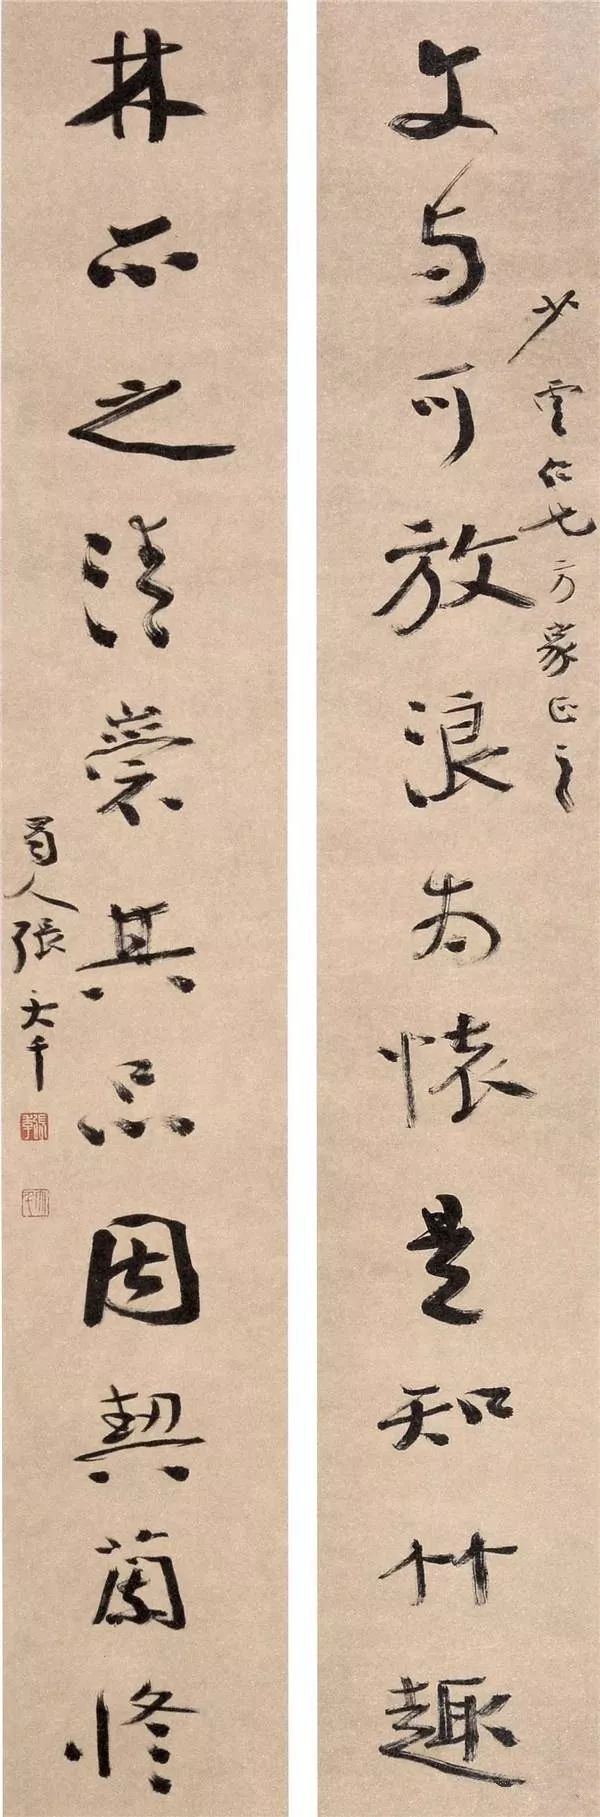 文与可放浪為懷是知竹趣
少雲仁兄方家正之
林之清其品因契蘭修
蜀人張大千